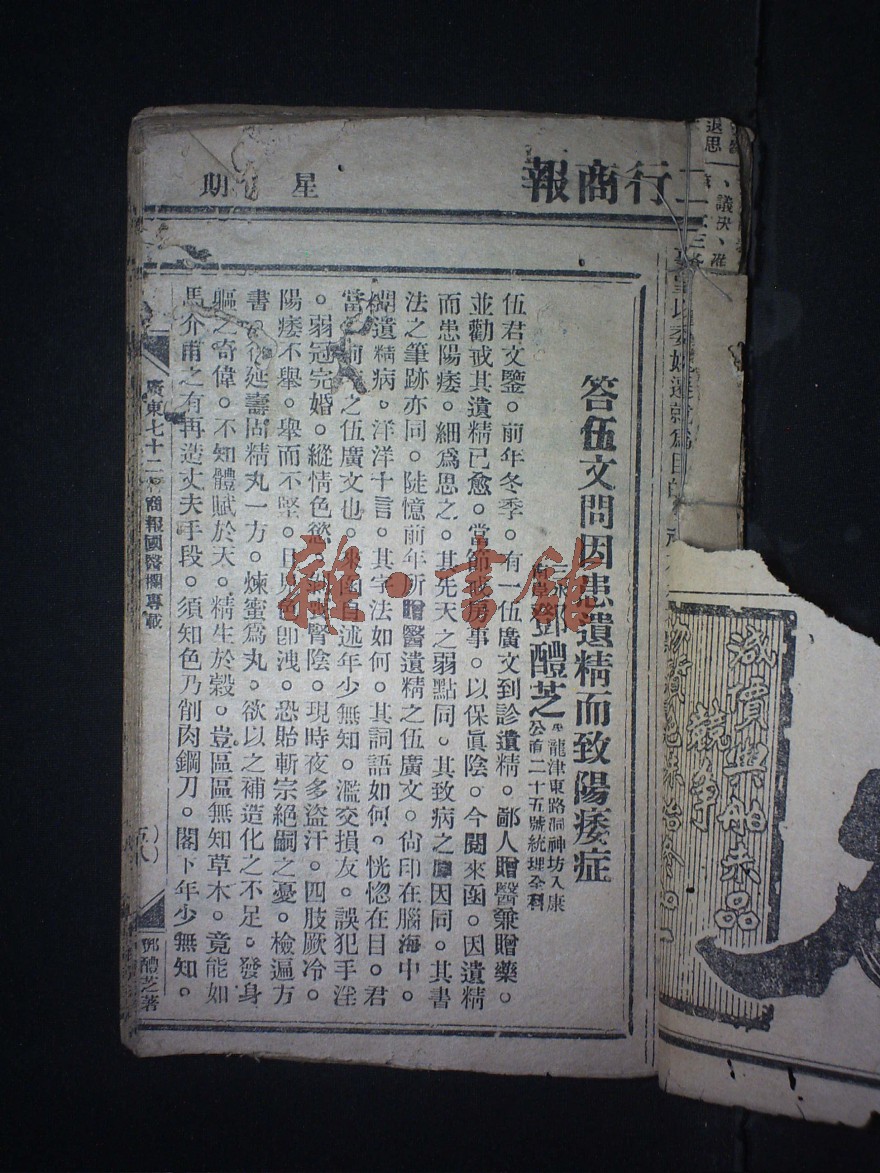 行商報
星 期
答伍文問因患遺精而致陽痿症
鄧醴芝
龍津東路洞神坊入康
公前二十五號統理全科
伍君文鑒。前年冬季。有一伍廣文到診遺精。鄙人贈醫兼贈藥。
並勸戒其遺精已愈。當節戒房事。以保眞陰。今閱來函。因遺精
而患陽痿。細爲思之。其先天之弱點同。其致病之因同。其書
法之筆跡亦同。陡憶前年所贈醫遺精之伍廣文。尙印在腦海中。
遺精病。洋洋十言。其字法如何。其詞語如何。恍惚在目。君
當之伍廣文也。來函自述年少無知。濫交損友。誤犯手淫
。弱冠完婚。縱情色慾。腎陰。現時夜多盜汗。四肢厥冷。
陽痿不舉。舉而不堅。且見色卽洩。恐貽斬宗絕嗣之憂。檢遍方
書。延壽固精丸一方。煉蜜爲丸。欲以之補造化之不足。發身
軀之奇偉。不知體賦於天。精生於穀。豈區區無知草木。竟能如
馬介甫之有再造丈夫手段。須知色乃削肉鋼刀。閣下年少無知。
廣東七十二商報國醫欄專載
五八
鄧醴芝著
減價與舶來品
競爭
雜·書館